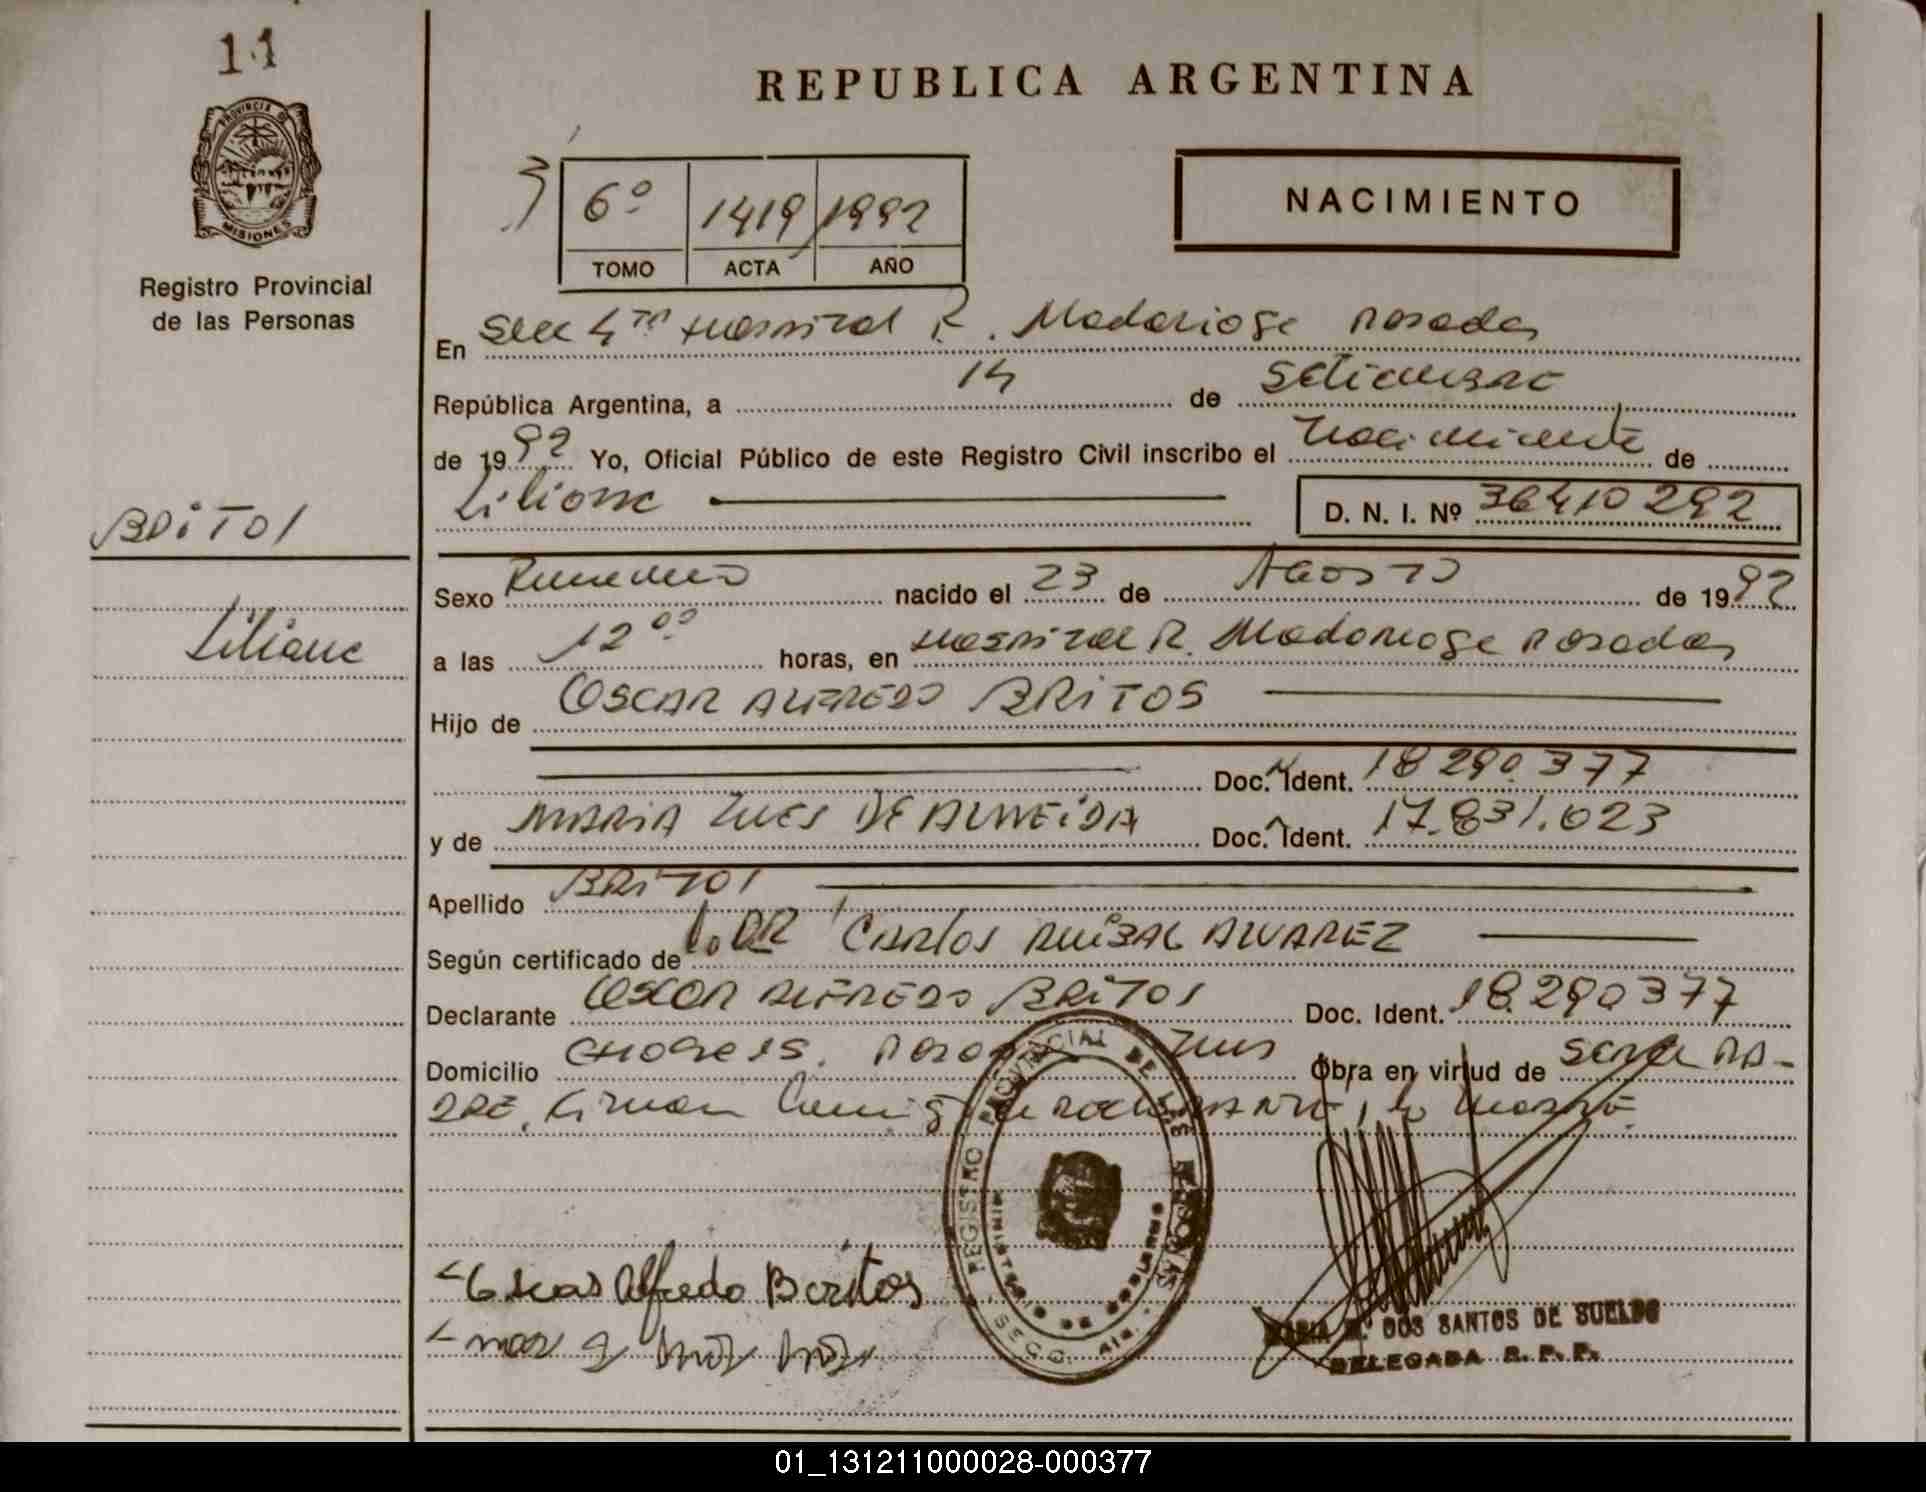 11
REPUBLICA ARGENTINA
PROVINCIA DE MISIONES
Registro Provincial
de las Personas
6º 1419 1992
TOMO ACTA AÑO
NACIMIENTO
En Secc 4ta Hospital R. Madariaga Posadas
República Argentina, a 14 de Setiembre
de 1992 Yo, Oficial Público de este Registro Civil inscribo el Nacimiento de
Liliana
D. N. I. Nº 36410292
BRITOS
Liliana
Sexo Femenino nacido el 23 de Agosto de 1992
a las 12 00 horas, en Hospital R. Madariaga Posadas
Hijo de OSCAR ALFREDO BRITOS
Doc. Ident. 18 290.377
y de MARIA INES DE ALMEIDA Doc. Ident. 17.831.023
Apellido BRITOS
Según certificado de DR Carlos ANIBAL ALVAREZ
Declarante OSCAR ALFREDO BRITOS Doc. Ident. 18.290377
Domicilio Obra en virtud de ser el PA-
DRE. Firman
Oscar Alfredo Britos
REGISTRO PROVINCIAL DE LAS PERSONAS
MINISTERIO DE GOBIERNO
SECC.
MARIA M. DOS SANTOS DE SUELDO
DELEGADA R. P. P.
01_131211000028-000377